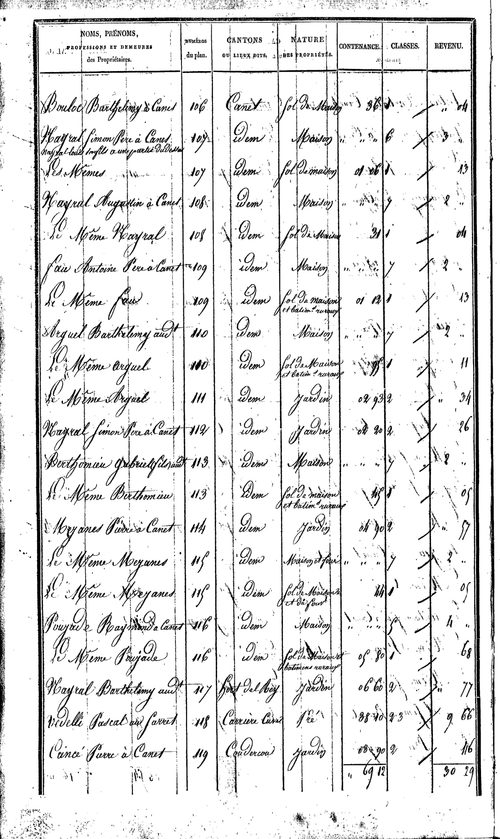 NOMS, PRÉNOMS, PROFESSIONS ET DEMEURES des Propriétaires. NUMÉROS du plan. CANTONS OU LIEUX DITS. NATURE DES PROPRIÉTÉS. CONTENANCE. CLASSES. REVENU.
Bouloc Barthelemy à Canet 106 Canet Sol de Maison 36 1 04
Nayral Simon Pere à Canet 107 idem Maison " " " 6 3 "
Les Mêmes 107 idem Sol de maison 01 06 1 13
Nayral Augustin à Canet 108 idem Maison " " " 7 2 "
Le Même Nayral 108 idem Sol de Maison 31 1 04
Antoine Pere à Canet 109 idem Maison " " " 7 2 "
Le Même 109 idem Sol de maison et batimts ruraux 01 12 1 13
Barthelemy audt 110 idem Maison " " " 7 2 "
Le Même 110 idem Sol de Maison et batimts ruraux 1 11
Le Même 111 idem Jardin 02 93 2 " 34
Nayral Simon Pere à Canet 112 idem Jardin 02 20 2 26
Berthomieu Gabriel fils audt 113 idem Maison " " " 7 2 "
Le Même Berthomieu 113 idem Sol de maison et batimts ruraux 45 1 05
Meyanes Pierre à Canet 114 idem Jardin 04 90 2 " 57
Le Même Meyanes 115 idem Maison et four " " " 7 2 "
Le Même Meyanes 115 idem Sol de Maison et de four 44 1 05
Raymond à Canet 116 idem Maison " " " 5 4 "
Le Même 116 idem Sol de Maison et batimens ruraux 05 80 1 68
Nayral Barthelemy audt 117 Jardin 06 60 2 " 77
Vedelle Pascal au 118 Carriere Pré 38 10 2 3 9 66
Pierre à Canet 119 Coudercou Jardin 2 46
" 69 12 30 29